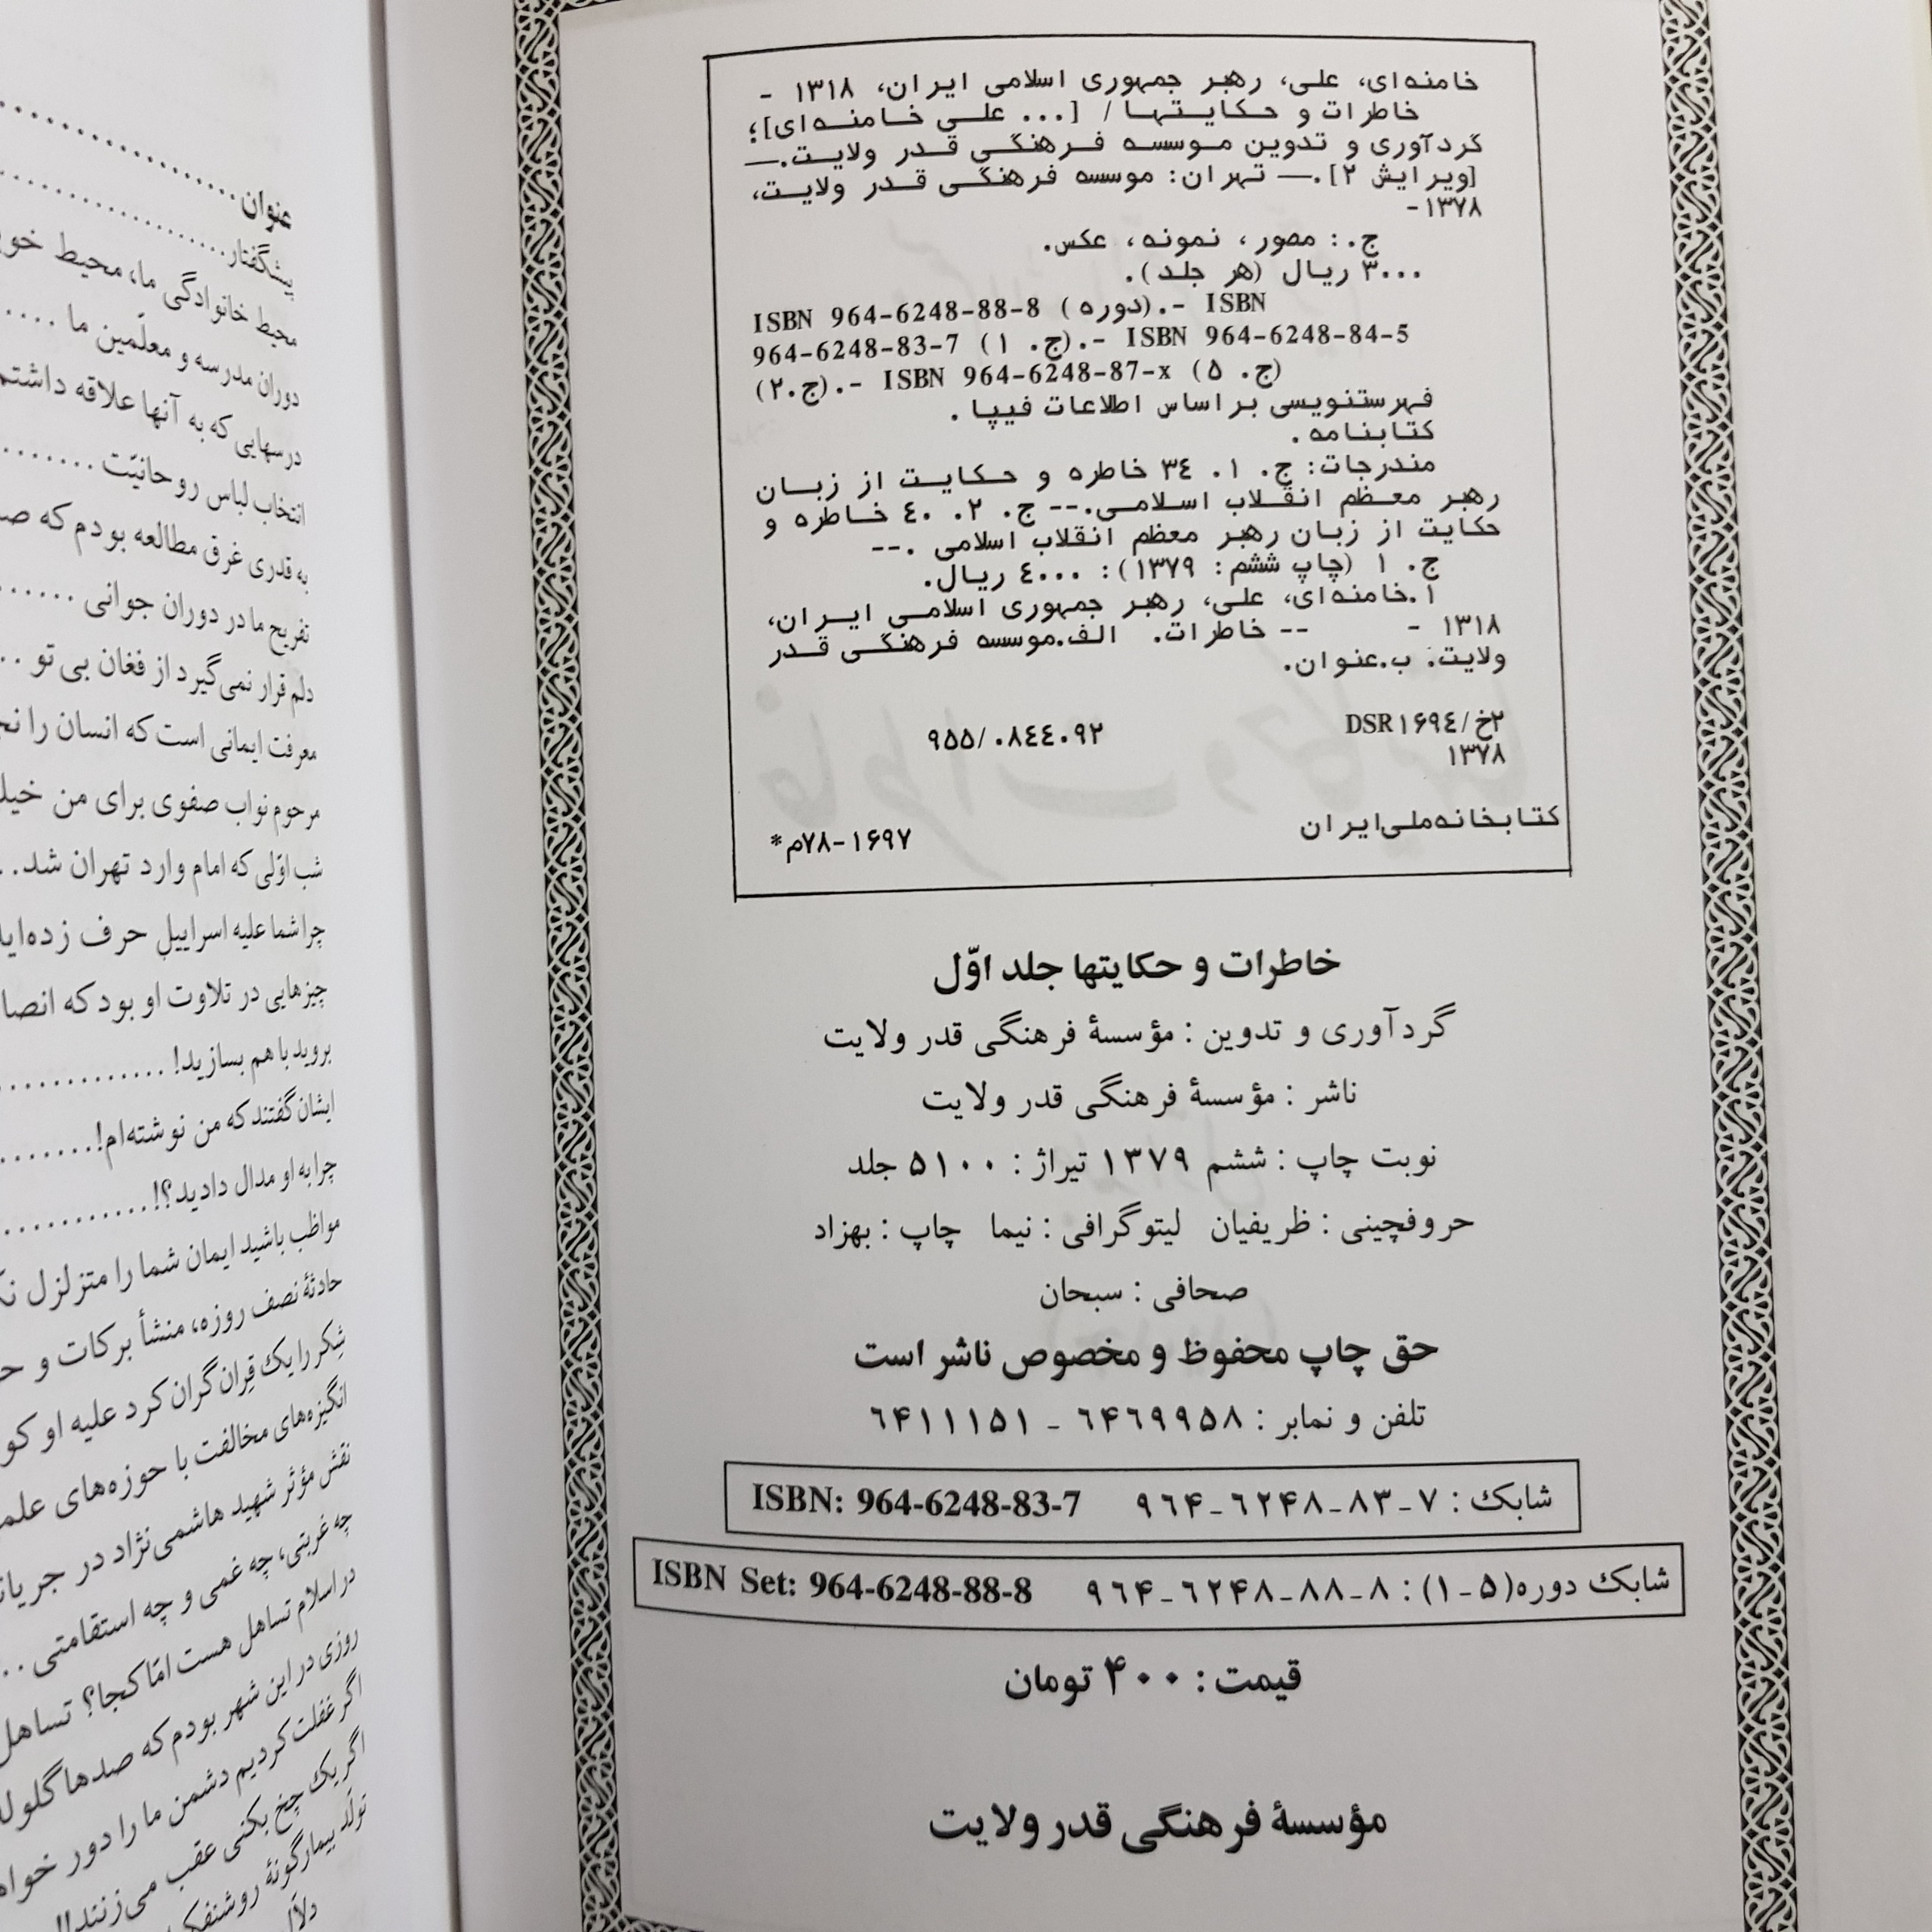 خامنه‌ای، علی، رهبر جمهوری اسلامی ایران، ۱۳۱۸ -
خاطرات و حکایتها / [... علی خامنه‌ای]؛
گردآوری و تدوین موسسه فرهنگی قدر ولایت.—
[ویرایش ۲].— تهران: موسسه فرهنگی قدر ولایت،
۱۳۷۸-
ج.: مصور، نمونه، عکس.
۳۰۰۰ ریال (هر جلد).
ISBN 964-6248-88-8 (دوره).- ISBN
964-6248-83-7 (ج. ۱).- ISBN 964-6248-84-5
(ج.۲).- ISBN 964-6248-87-x (ج. ۵)
فهرستنویسی براساس اطلاعات فیپا.
کتابنامه.
مندرجات: ج. ۱. ۳٤ خاطره و حکایت از زبان
رهبر معظم انقلاب اسلامی.-- ج. ۲. ٤۰ خاطره و
حکایت از زبان رهبر معظم انقلاب اسلامی .--
ج. ۱ (چاپ ششم: ۱۳۷۹): ٤۰۰۰ ریال.
۱.خامنه‌ای، علی، رهبر جمهوری اسلامی ایران،
۱۳۱۸ - -- خاطرات. الف.موسسه فرهنگی قدر
ولایت. ب.عنوان.
۲خ/DSR۱۶۹٤
۹۵۵/۰۸٤٤۰۹۲
۱۳۷۸
کتابخانه‌ملی‌ایران
۱۶۹۷-۷۸م*
خاطرات و حکایتها جلد اوّل
گردآوری و تدوین : مؤسسهٔ فرهنگی قدر ولایت
ناشر : مؤسسهٔ فرهنگی قدر ولایت
نوبت چاپ : ششم ۱۳۷۹ تیراژ : ۵۱۰۰ جلد
حروفچینی : ظریفیان لیتوگرافی : نیما چاپ : بهزاد
صحافی : سبحان
حق چاپ محفوظ و مخصوص ناشر است
تلفن و نمابر : ۶۴۶۹۹۵۸ - ۶۴۱۱۱۵۱
شابک : ۷-۸۳-۶۲۴۸-۹۶۴ ISBN: 964-6248-83-7
شابک دوره(۵-۱) : ۸-۸۸-۶۲۴۸-۹۶۴ ISBN Set: 964-6248-88-8
قیمت : ۴۰۰ تومان
مؤسسهٔ فرهنگی قدر ولایت
عنوان
پیشگفتار
محیط خانوادگی ما، محیط
دوران مدرسه و معلّمین ما
درسهایی که به آنها علاقه داشتم
انتخاب لباس روحانیّت
به قدری غرق مطالعه بودم که
تفریح ما در دوران جوانی
دلم قرار نمی‌گیرد از فغان بی تو
معرفت ایمانی است که انسان را
مرحوم نواب صفوی برای من
شب اوّلی که امام وارد تهران شد
چرا شما علیه اسراییل حرف زده‌اید
چیزهایی در تلاوت او بود که
بروید با هم بسازید!
ایشان گفتند که من نوشته‌ام!
چرا به او مدال دادید؟!
مواظب باشید ایمان شما را متزلزل
حادثهٔ نصف روزه، منشأ برکات و
شِکر را یک قِران گران کرد علیه او
انگیزه‌های مخالفت با حوزه‌های
نقش مؤثر شهید هاشمی‌نژاد در
چه غربتی، چه غمی و چه استقامتی
در اسلام تساهل هست امّا کجا؟ تساهل
روزی در این شهر بودم که صدها
اگر غفلت کردیم دشمن ما را دور
اگر یک چخ بکنی عقب می‌زنند!!
تولّد بیمارگونهٔ